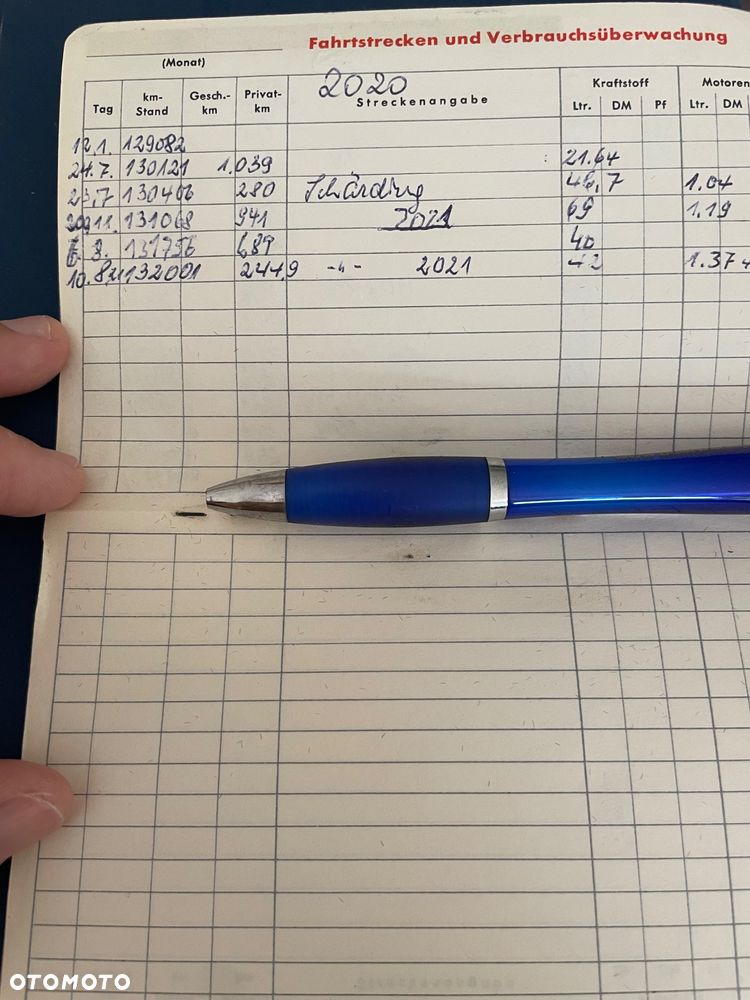 Fahrtstrecken und Verbrauchsüberwachung
(Monat)
2020
Tag km-Stand Gesch.-km Privat-km Streckenangabe Kraftstoff Motoren
Ltr. DM Pf Ltr. DM
12.1. 129082
24.7. 130121 1.039 21.64
23.7 130406 280 Schärding 46,7 1.04
11. 131068 941 2021 69 1.19
3. 131756 689 40
10.8. 132001 244,9 -"- 2021 42 1.374
OTOMOTO